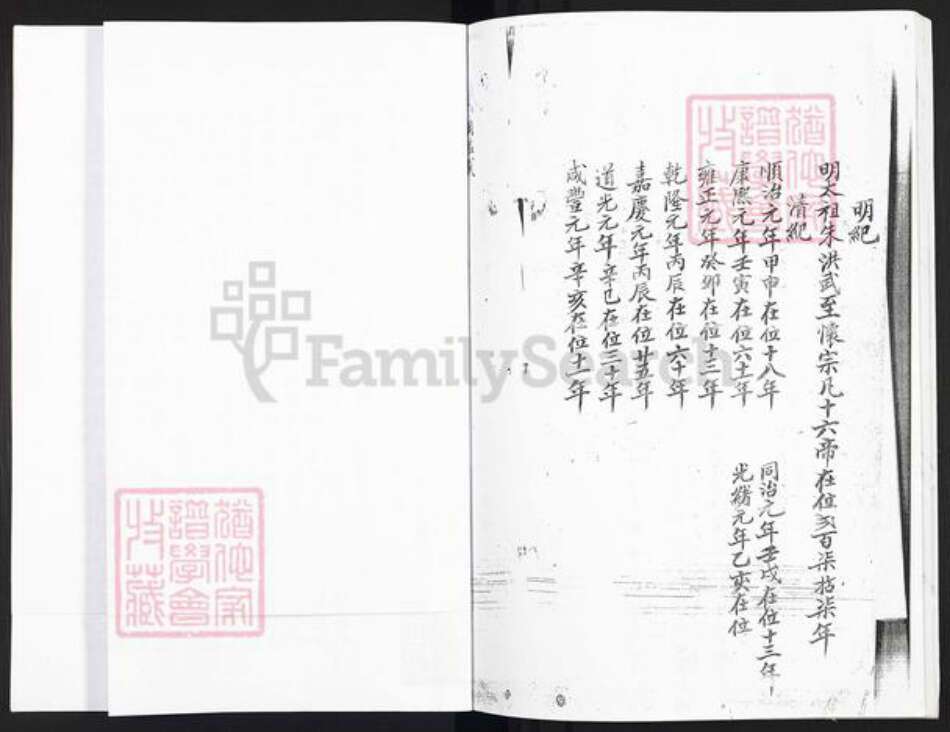 明紀
明太祖朱洪武至懷宗凡十六帝在位弍百柒拾柒年
清紀
順治元年甲申在位十八年
康熙元年壬寅在位六十一年
雍正元年癸卯在位十三年
乾隆元年丙辰在位六十年
嘉慶元年丙辰在位廿五年
道光元年辛巳在位三十年
咸豐元年辛亥在位十一年
同治元年壬戌在位十三年
光緒元年乙亥在位
猶他家
譜學會
收藏
猶他家
譜學會
收藏
FamilySearch